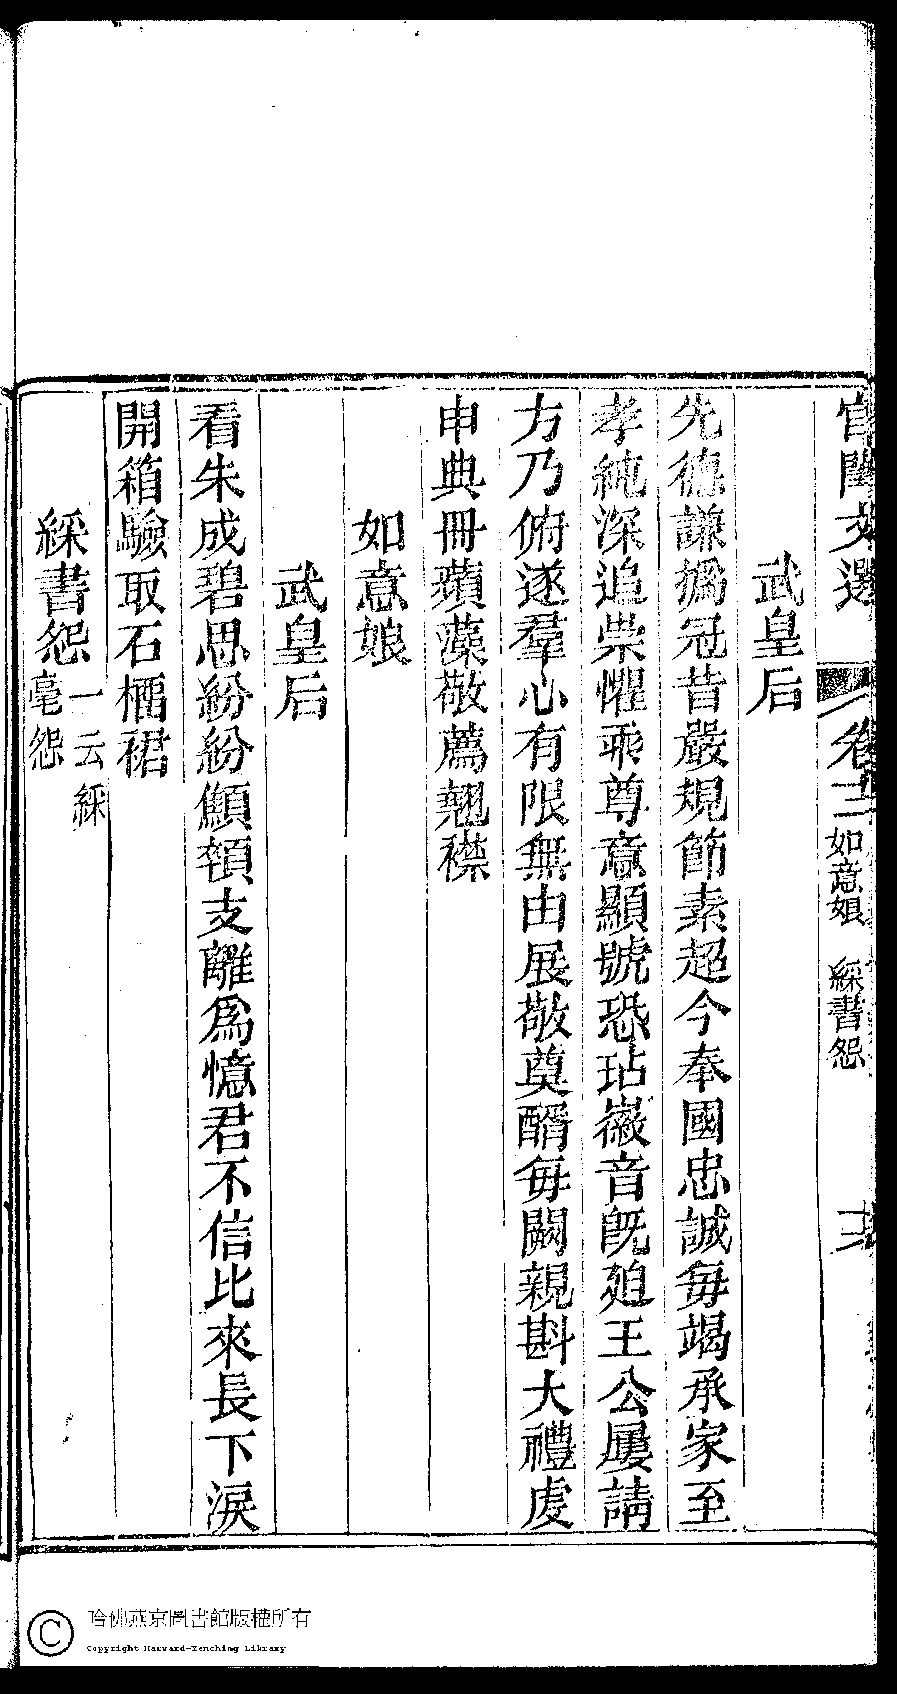 宮閨文選 卷 如意娘 綵書怨
武皇后
先德謙撝冠昔嚴規節素超今奉國忠誠每竭承家至
孝純深追崇懼乖尊意顯號恐玷徽音旣廹王公屢請
方乃俯遂羣心有限無由展敬奠醑每闕親斟大禮虔
申典冊蘋藻敬薦翹襟
如意娘
武皇后
看朱成碧思紛紛顦顇支離爲憶君不信比來長下淚
開箱驗取石榴裙
綵書怨一云綵毫怨
哈佛燕京圖書館版權所有
Copyright Harvard-Yenching Library